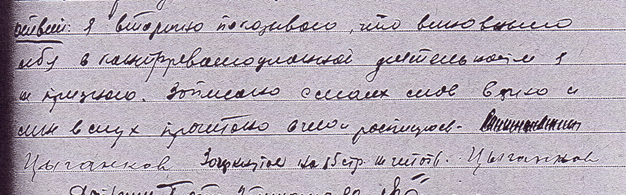 ствий: я вторично показываю, что виновным
себя в контрреволюционной деятельности я
не признаю. Записано с моих слов верно и
мне вслух прочитано в чем и расписуюсь.
Цыганков Зачеркнутое на 15 стр. не читать. Цыганков